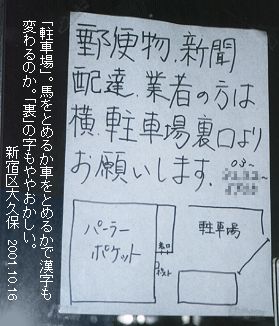 郵便物、新聞
配達、業者の方は
横、軴車場裏口より
お願いします。
03-
パーラー
ポケット
裏口
ポスト
軴車場
「軴車場」。馬をとめるか車をとめるかで漢字も
変わるのか。「裏」の字もややおかしい。
新宿区大久保 2001.10.16